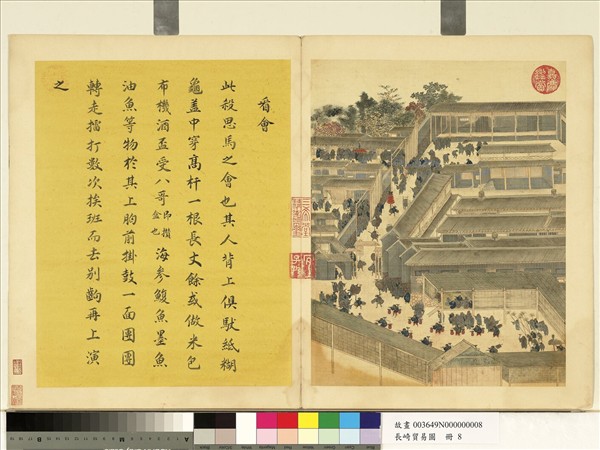 看會
此殺思馬之會也其人背上俱馱紙糊
龜蓋中穿高杆一根長丈餘或做米包
布機酒盃受八哥即攢盒也海參鰒魚墨魚
油魚等物於其上胸前掛鼓一面團團
轉走擂打數次挨班而去別齣再上演
之
故畫 003649N000000008
長崎貿易圖 冊 8